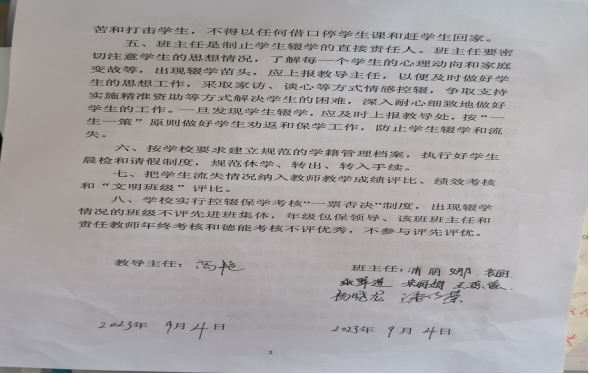 苦和打击学生，不得以任何借口停学生课和赶学生回家。
五、班主任是制止学生辍学的直接责任人。班主任要密
切注意学生的思想情况，了解每一个学生的心理动向和家庭
变故等，出现辍学苗头，应上报教导主任，以便及时做好学
生的思想工作，采取家访、谈心等方式情感控辍，争取支持
实施精准资助等方式解决学生的困难，深入耐心细致地做好
学生的工作。一旦发现学生辍学，应及时上报教导处，按“一
生一策”原则做好学生劝返和保学工作，防止学生辍学和流
失。
六、按学校要求建立规范的学籍管理档案，执行好学生
晨检和请假制度，规范休学、转出、转入手续。
七、把学生流失情况纳入教师教学成绩评比、绩效考核
和“文明班级”评比。
八、学校实行控辍保学考核“一票否决”制度，出现辍学
情况的班级不评先进班集体，年级包保领导、该班班主任和
责任教师年终考核和德能考核不评优秀，不参与评先评优。
教导主任：
班主任：浦丽娜
杨晓龙
2023年 9月4日
2023年 9月4日
2